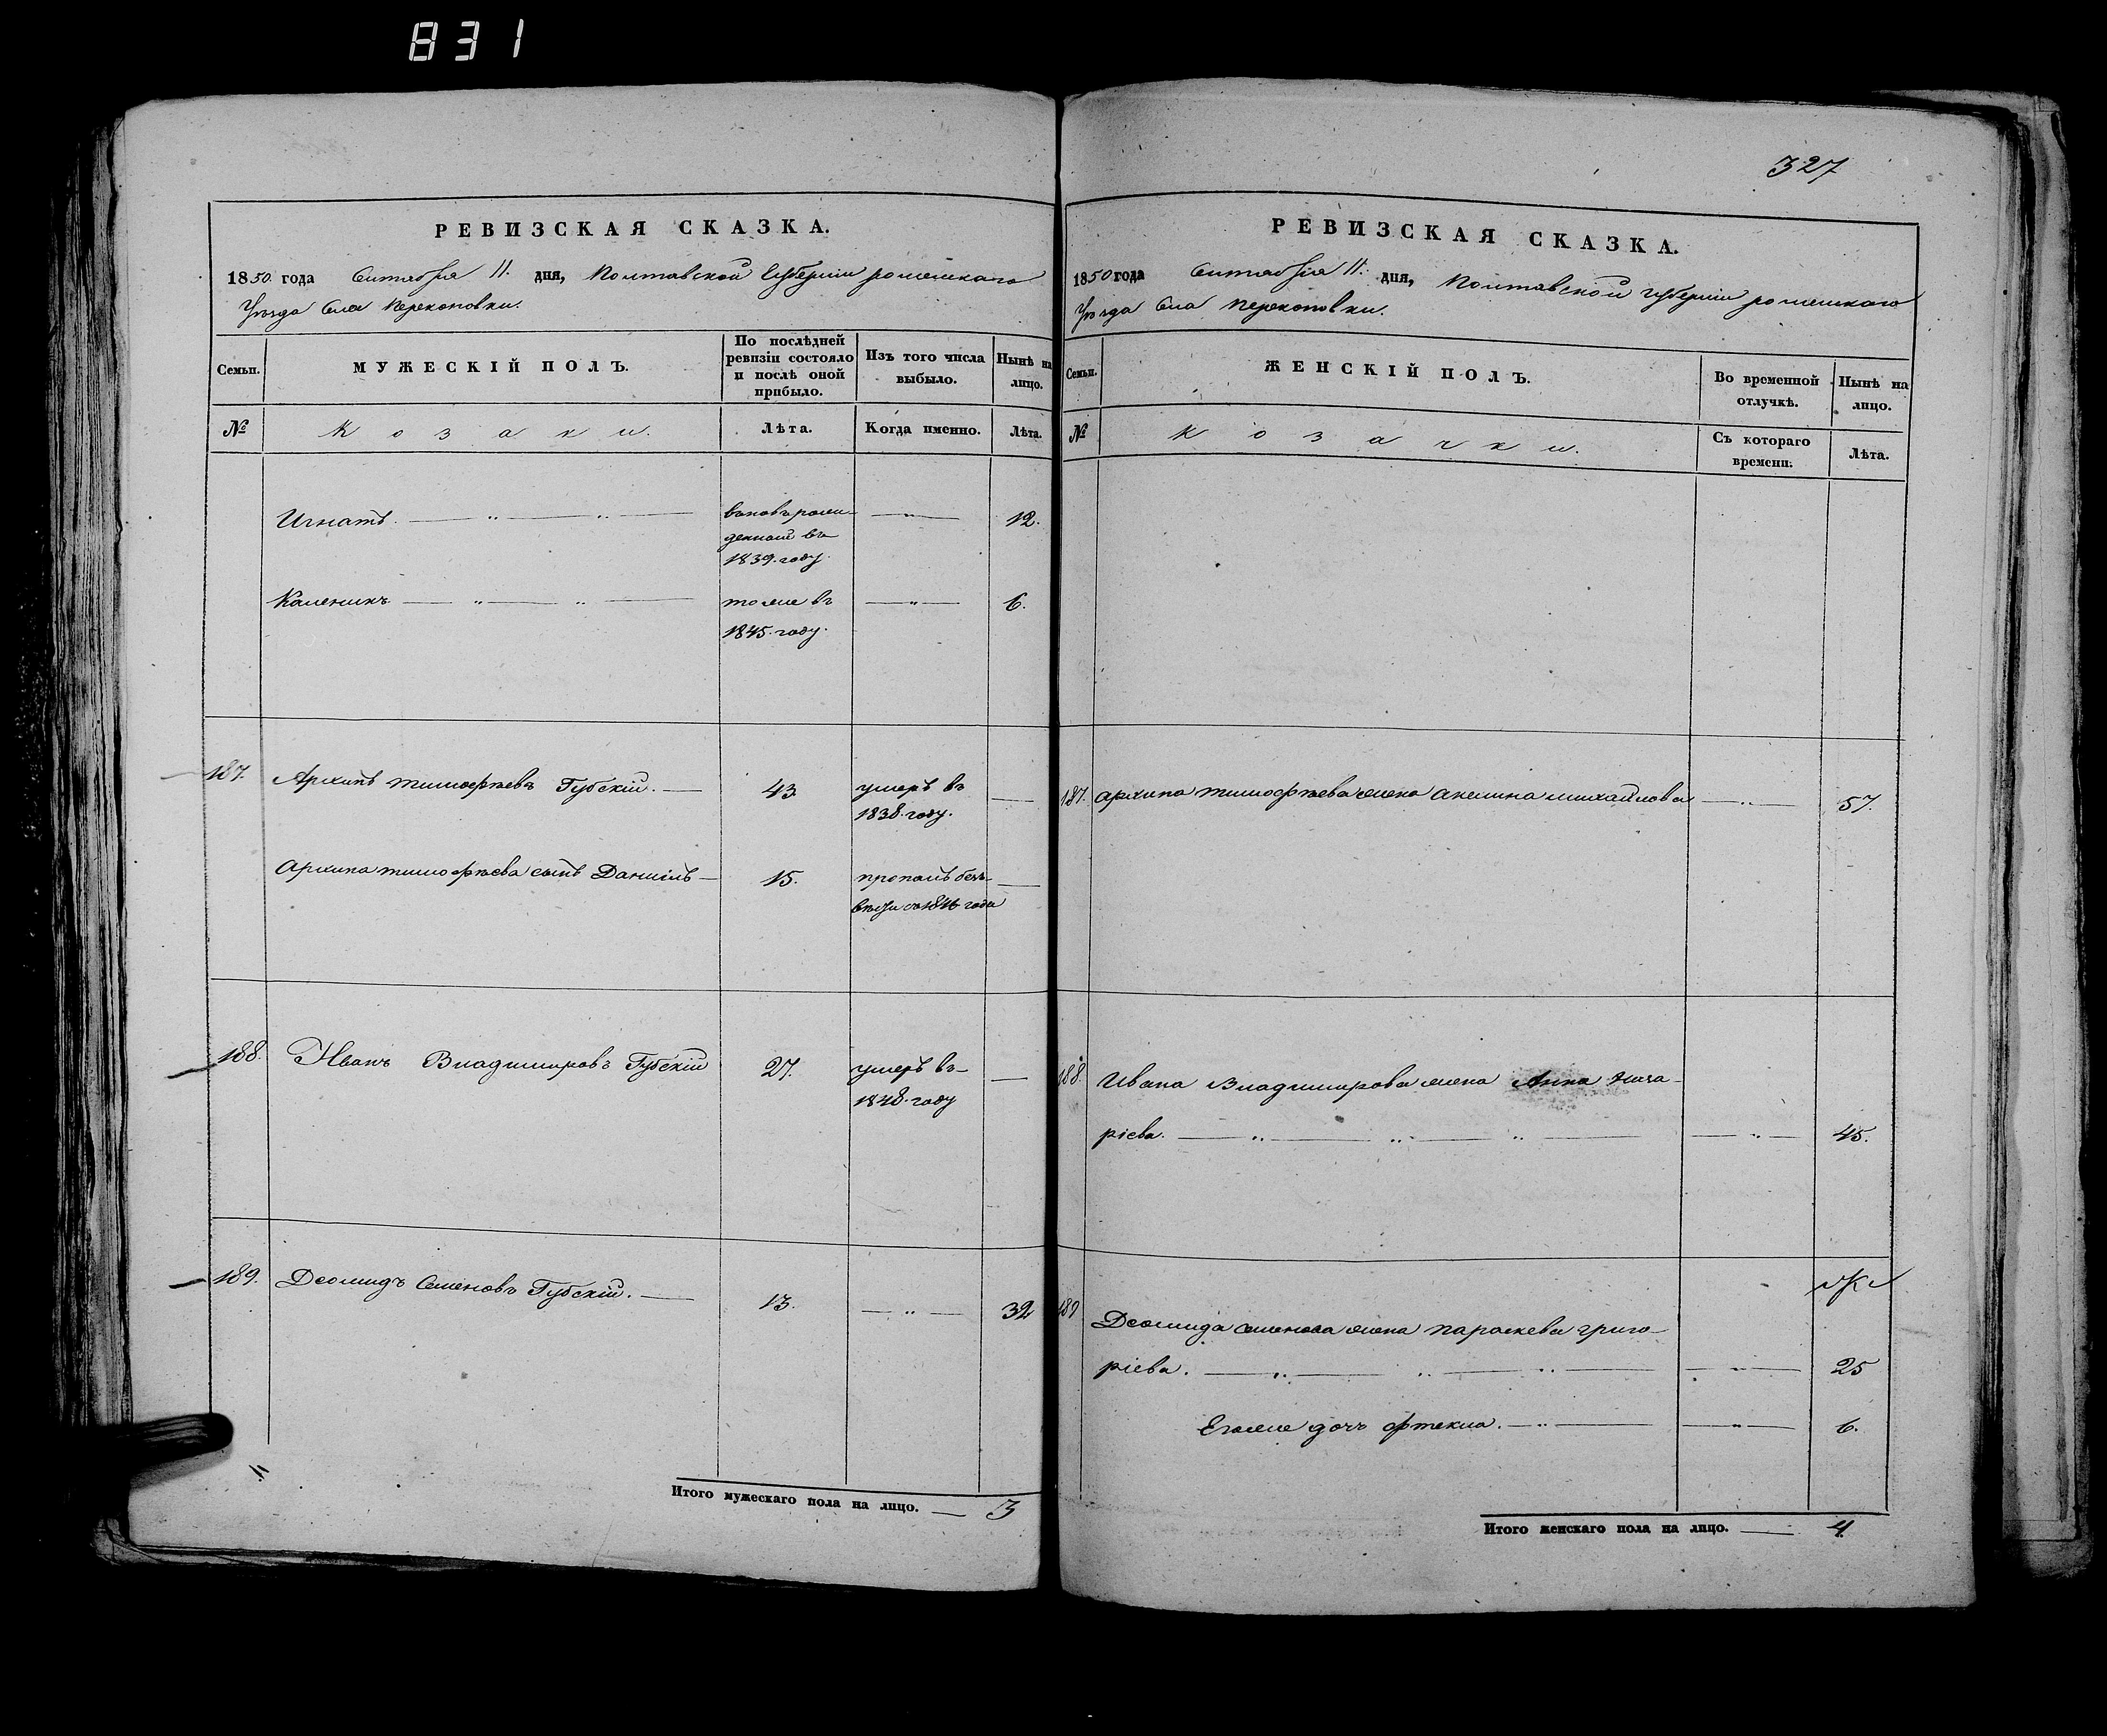 831
327
РЕВИЗСКАЯ СКАЗКА.
1850 года Сентября 11. дня, Полтавской Губерніи роменскаго
Уѣзда Села Перекоповки.
Семьи.
МУЖЕСКІЙ ПОЛЪ.
По послѣдней ревизіи состояло и послѣ оной прибыло.
Изъ того числа выбыло.
Нынѣ на лицо.
№
Козаки.
Лѣта.
Когда именно.
Лѣта.
Игнатъ. — „ — „ — вновь рож- — „ — 12.
денный въ
1839. году.
Каленикъ — „ — „ — тоже въ — „ — 6.
1845. году.
187. Архипъ тимофѣевъ Губскій. — 43. умеръ въ —
1838. году.
Архипа тимофѣева сынъ Даніилъ — 15. пропалъ безъ —
вѣсти съ года
188. Иванъ Владимировъ Губскій 27. умеръ въ —
1848. году
189. Деомидъ Семеновъ Губскій. — 13. — „ — 32
Итого мужескаго пола на лицо. — 3
РЕВИЗСКАЯ СКАЗКА.
1850 года Сентября 11. дня, Полтавской губерніи роменскаго
Уѣзда Села Перекоповки.
Семьи.
ЖЕНСКІЙ ПОЛЪ.
Во временной отлучкѣ.
Нынѣ на лицо.
№
Козачки.
Съ котораго времени.
Лѣта.
187. архипа тимофѣева жена акелина михайлова — „ — 57.
188. Ивана Владимирова жена Анна
ріева. — „ — „ — „ — — „ — 45.
189 Деомида семенова жена параскева григо-
ріева. — „ — „ — „ — — „ — 25
Егоже дочь фтекла. — „ — — „ — 6.
Итого женскаго пола на лицо. — 4